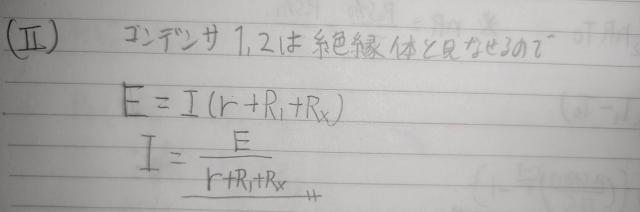 (Ⅱ) コンデンサ 1,2は絶縁体と見なせるので
E = I (r + R₁ + Rx)
I = E / (r + R₁ + Rx)